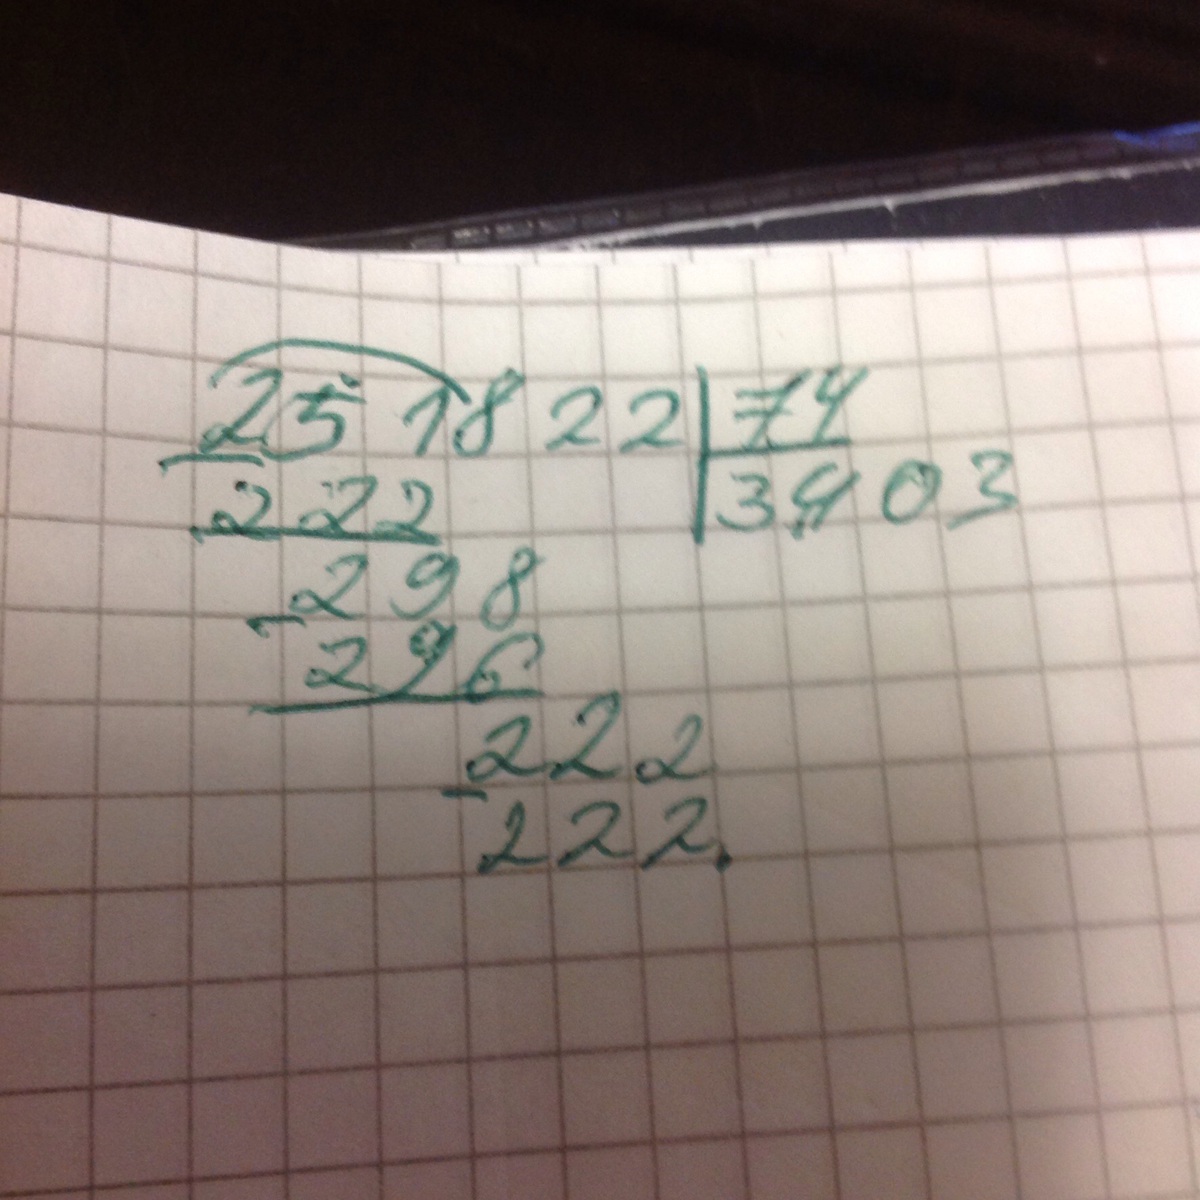 251822 74
222 3403
298
296
222
222.